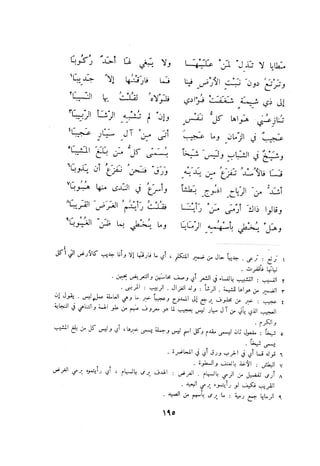 مطايا لا تذل لمن عليها ولا يبغي لها أحد ركوبا
وترتع دون نبت الأرض فينا فما فارقتها إلا جديبا¹
إلى ذي شيمة شغفت فؤادي فلولاه لقلت بها النسيبا²
تنازعني هواها كل نفس وإن لم تشبه الرشأ الربيبا³
عجيب في الزمان وما عجيب أتى من آل سيار عجيبا⁴
وشيخ في الشباب وليس شيخا يسمى كل من بلغ المشيبا⁵
قسا فالأسد تفزع من يديه ورق فنحن نفزع أن يذوبا⁶
أشد من الرياح الهوج بطشا وأسرع في الندى منها هبوبا⁷
وقالوا ذاك أرمى من رأينا فقلت رأيتم الغرض القريبا⁸
وهل يخطي بأسهمه الرمايا وما يخطي بما ظن الغيوبا⁹
١ ترتع : ترعى . جديباً حال من ضمير المتكلم ، أي ما فارقتها إلا وأنا جديب كالأرض التي أكل
نباتها فأقفرت .
٢ النسيب : التشبيب بالنساء في الشعر أي وصف محاسنهن والتعريض بحبهن .
٣ الضمير من هواها للشيمة . الرشأ : ولد الغزال . الربيب : المربى .
٤ عجيب : خبر عن محذوف يرجع إلى الممدوح وعجيباً خبر ما وهي العاملة عمل ليس . يقول إن
العجيب الذي يأتي من آل سيار ليس بعجيب لما هو معروف عنهم من علو الهمة والتناهي في النجابة
والكرم .
٥ شيخاً : مفعول ثان ليسمى مقدم وكل اسم ليس وجملة يسمى خبرها ، أي وليس كل من بلغ المشيب
يسمى شيخاً .
٦ قوله قسا أي في الحرب ورق أي في المحاضرة .
٧ البطش : الأخذ بالعنف والسطوة .
٨ أرمى تفضيل من الرمي بالسهام . الغرض : الهدف يرمى بالسهام ، أي رأيتموه يرمي الغرض
القريب فكيف لو رأيتموه يرمي البعيد .
٩ الرمايا جمع رمية : ما يرمى بالسهم من الصيد .
١٩٥